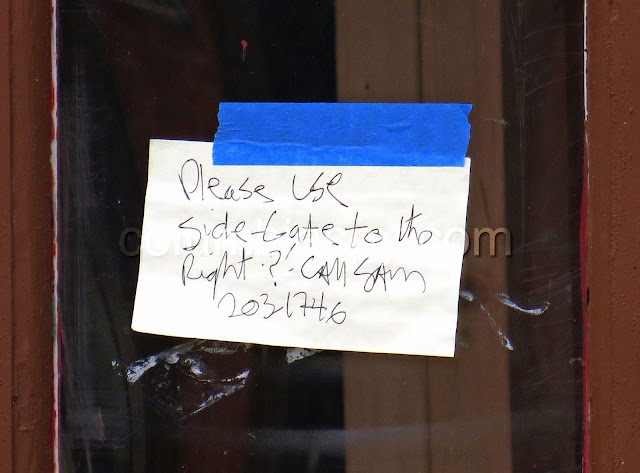 Please Use
Side Gate to the
Right ?! CAll SAm
203-1746